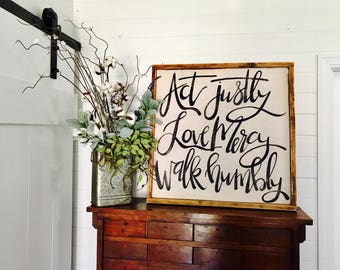 Act justly
Love Mercy
Walk humbly